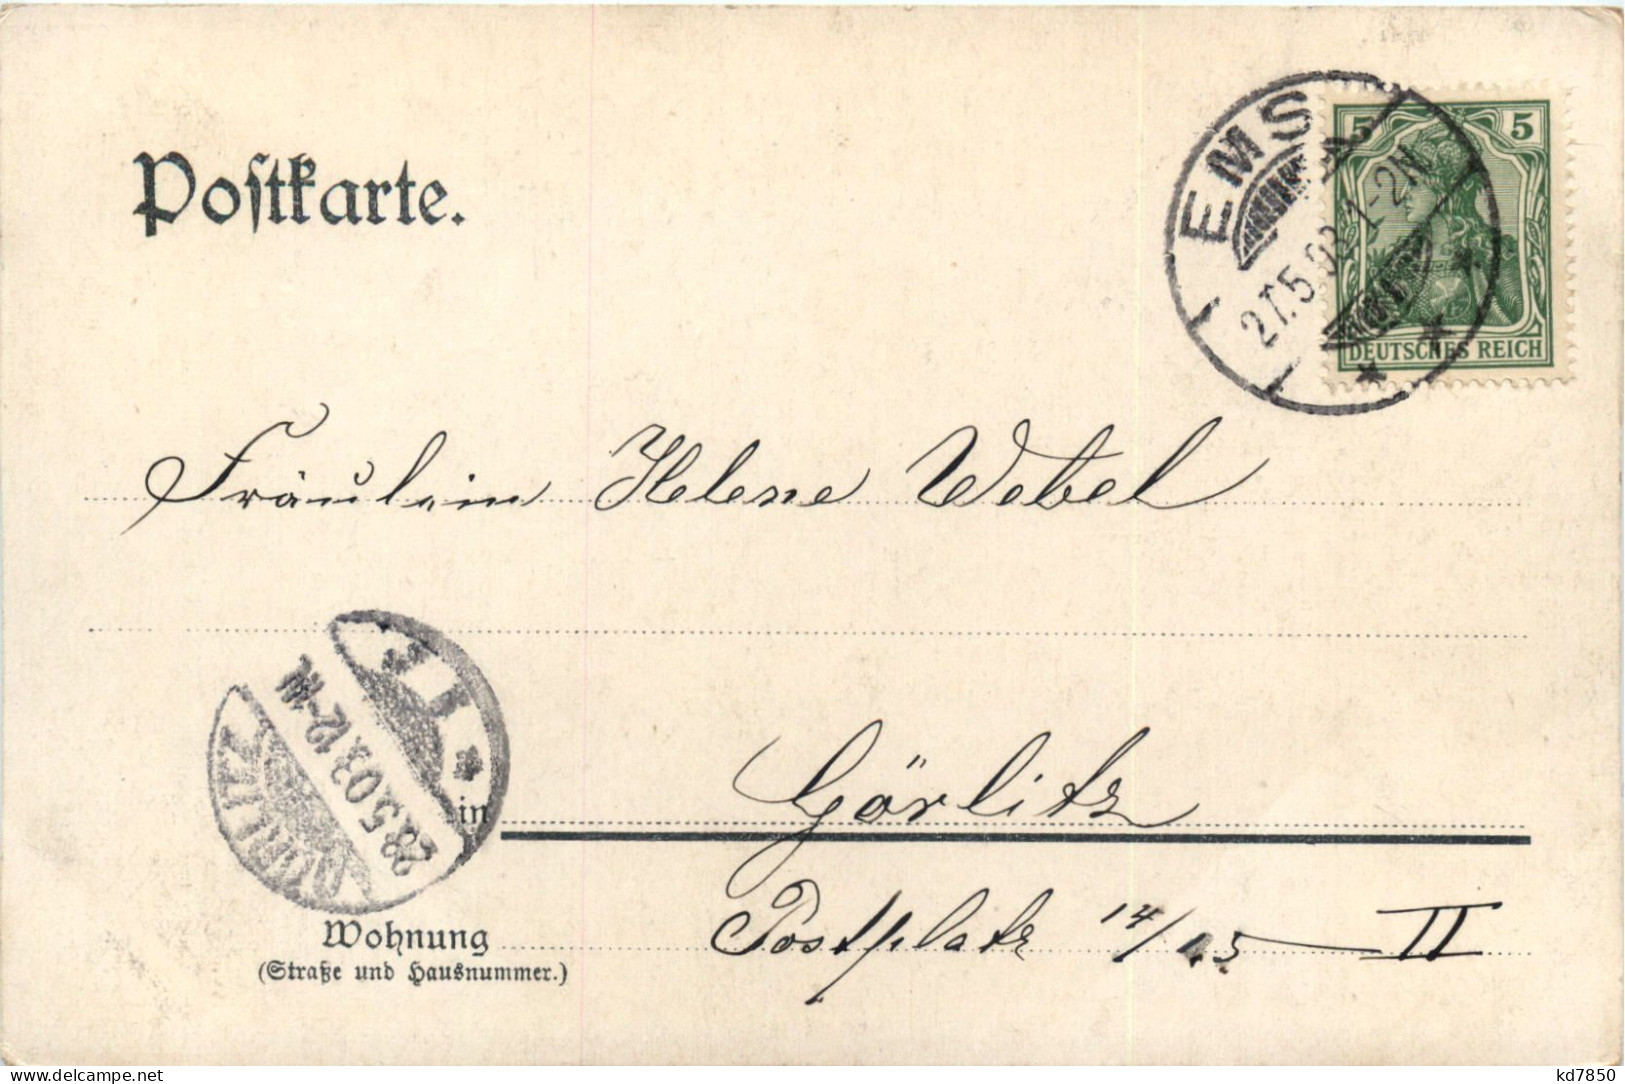 Postkarte.
EMS
27.5.03. 1-2N
5 5
DEUTSCHES REICH
Fräulein Helene Webel
GÖRLITZ
28.5.03. 12-1N
in Görlitz
Wohnung Postplatz 14/15 II
(Straße und Hausnummer.)
www.delcampe.net
kd7850